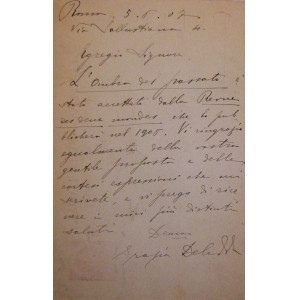 Roma, 3. 6. 07
Via Sallustiana 4.
Egregio Signore
L'Ombra del passato è
stato accettato dalla Revue
des deux mondes, che lo pub-
blicherà nel 1908. Vi ringrazio
egualmente della vostra
gentile proposta e delle
cortesi espressioni che mi
scrivete, e vi prego di rice-
vere i miei più distinti
saluti
Grazia Deledda